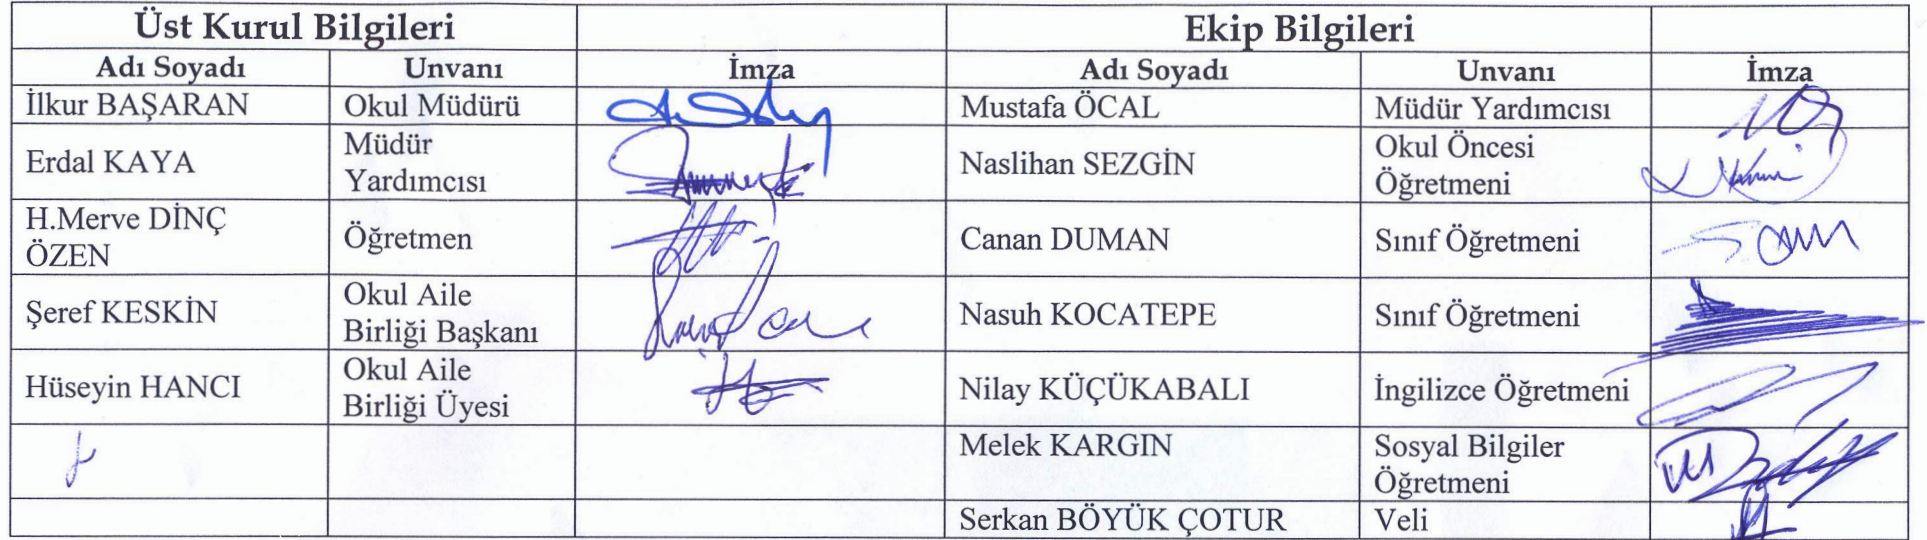 Üst Kurul Bilgileri Ekip Bilgileri
Adı Soyadı Unvanı İmza Adı Soyadı Unvanı İmza
İlkur BAŞARAN Okul Müdürü Mustafa ÖCAL Müdür Yardımcısı
Erdal KAYA Müdür Yardımcısı Naslihan SEZGİN Okul Öncesi Öğretmeni
H.Merve DİNÇ ÖZEN Öğretmen Canan DUMAN Sınıf Öğretmeni
Şeref KESKİN Okul Aile Birliği Başkanı Nasuh KOCATEPE Sınıf Öğretmeni
Hüseyin HANCI Okul Aile Birliği Üyesi Nilay KÜÇÜKABALI İngilizce Öğretmeni
Melek KARGIN Sosyal Bilgiler Öğretmeni
Serkan BÖYÜK ÇOTUR Veli